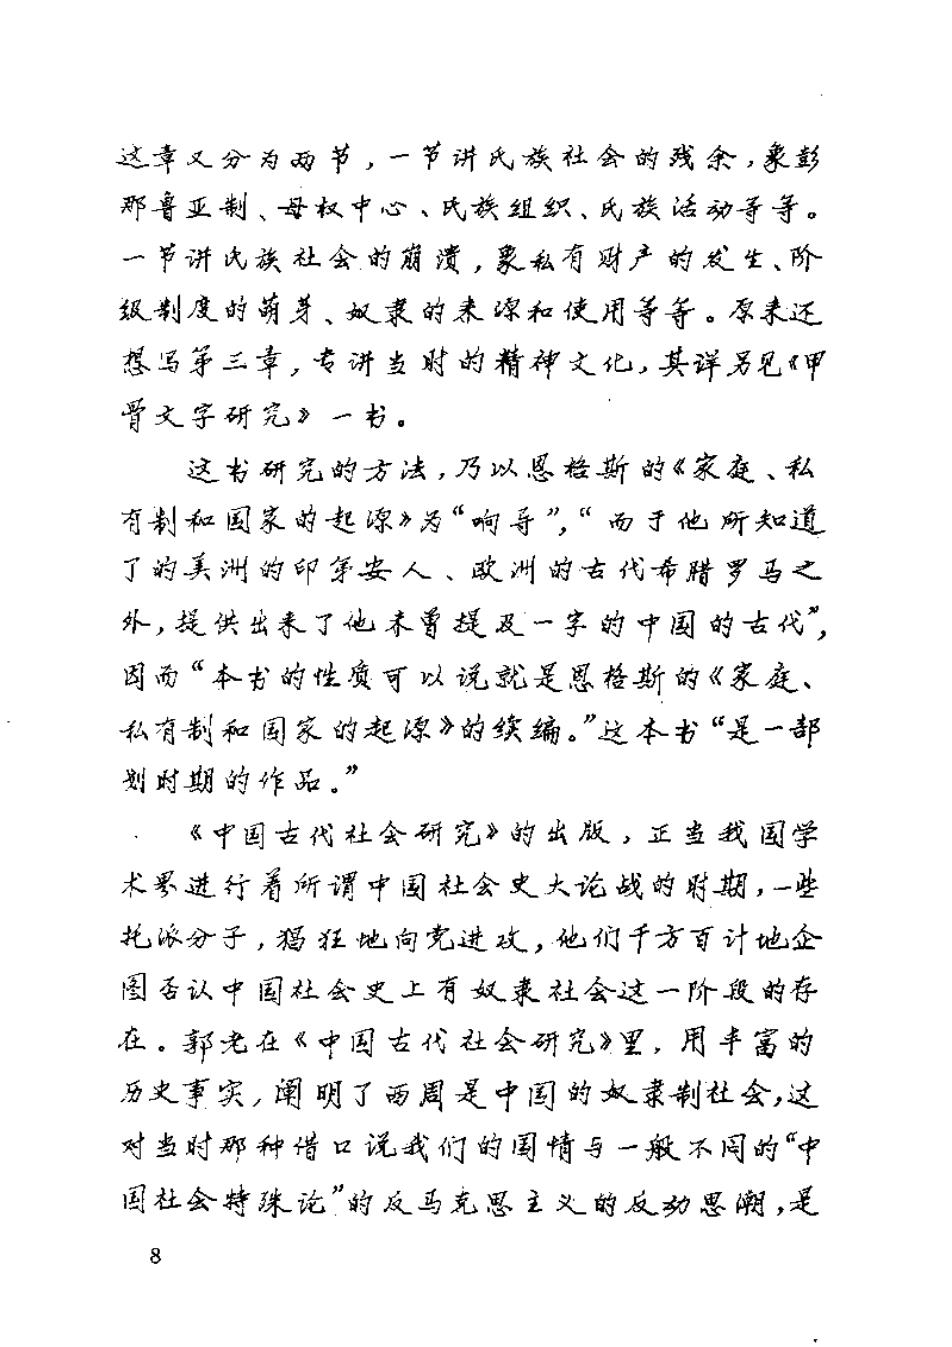 这章又分为两节，一节讲氏族社会的残余，象彭
那鲁亚制、母权中心、氏族组织、氏族活动等等。
一节讲氏族社会的崩溃，象私有财产的发生、阶
级制度的萌芽、奴隶的来源和使用等等。原来还
想写第三章，专讲当时的精神文化，其详另见《甲
骨文字研究》一书。
这书研究的方法，乃以恩格斯的《家庭、私
有制和国家的起源》为“响导”，“而于他所知道
了的美洲的印第安人、欧洲的古代希腊罗马之
外，提供出来了他未曾提及一字的中国的古代”，
因而“本书的性质可以说就是恩格斯的《家庭、
私有制和国家的起源》的续编。”这本书“是一部
划时期的作品。”
《中国古代社会研究》的出版，正当我国学
术界进行着所谓中国社会史大论战的时期，一些
托派分子，猖狂地向党进攻，他们千方百计地企
图否认中国社会史上有奴隶社会这一阶段的存
在。郭老在《中国古代社会研究》里，用丰富的
历史事实，阐明了西周是中国的奴隶制社会，这
对当时那种借口说我们的国情与一般不同的“中
国社会特殊论”的反马克思主义的反动思潮，是
8